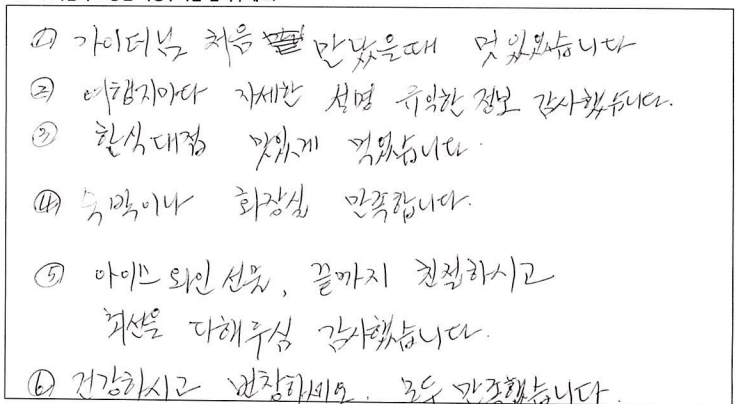 ① 가이더님 처음 만났을때 멋있었습니다
② 여행지마다 자세한 설명 유익한 정보 감사했습니다.
③ 한식대접 맛있게 먹었습니다.
④ 숙박이나 화장실 만족합니다.
⑤ 아이스와인 선물, 끝까지 친절하시고
최선을 다해주심 감사했습니다.
⑥ 건강하시고 번창하세요. 모두 만족했습니다.